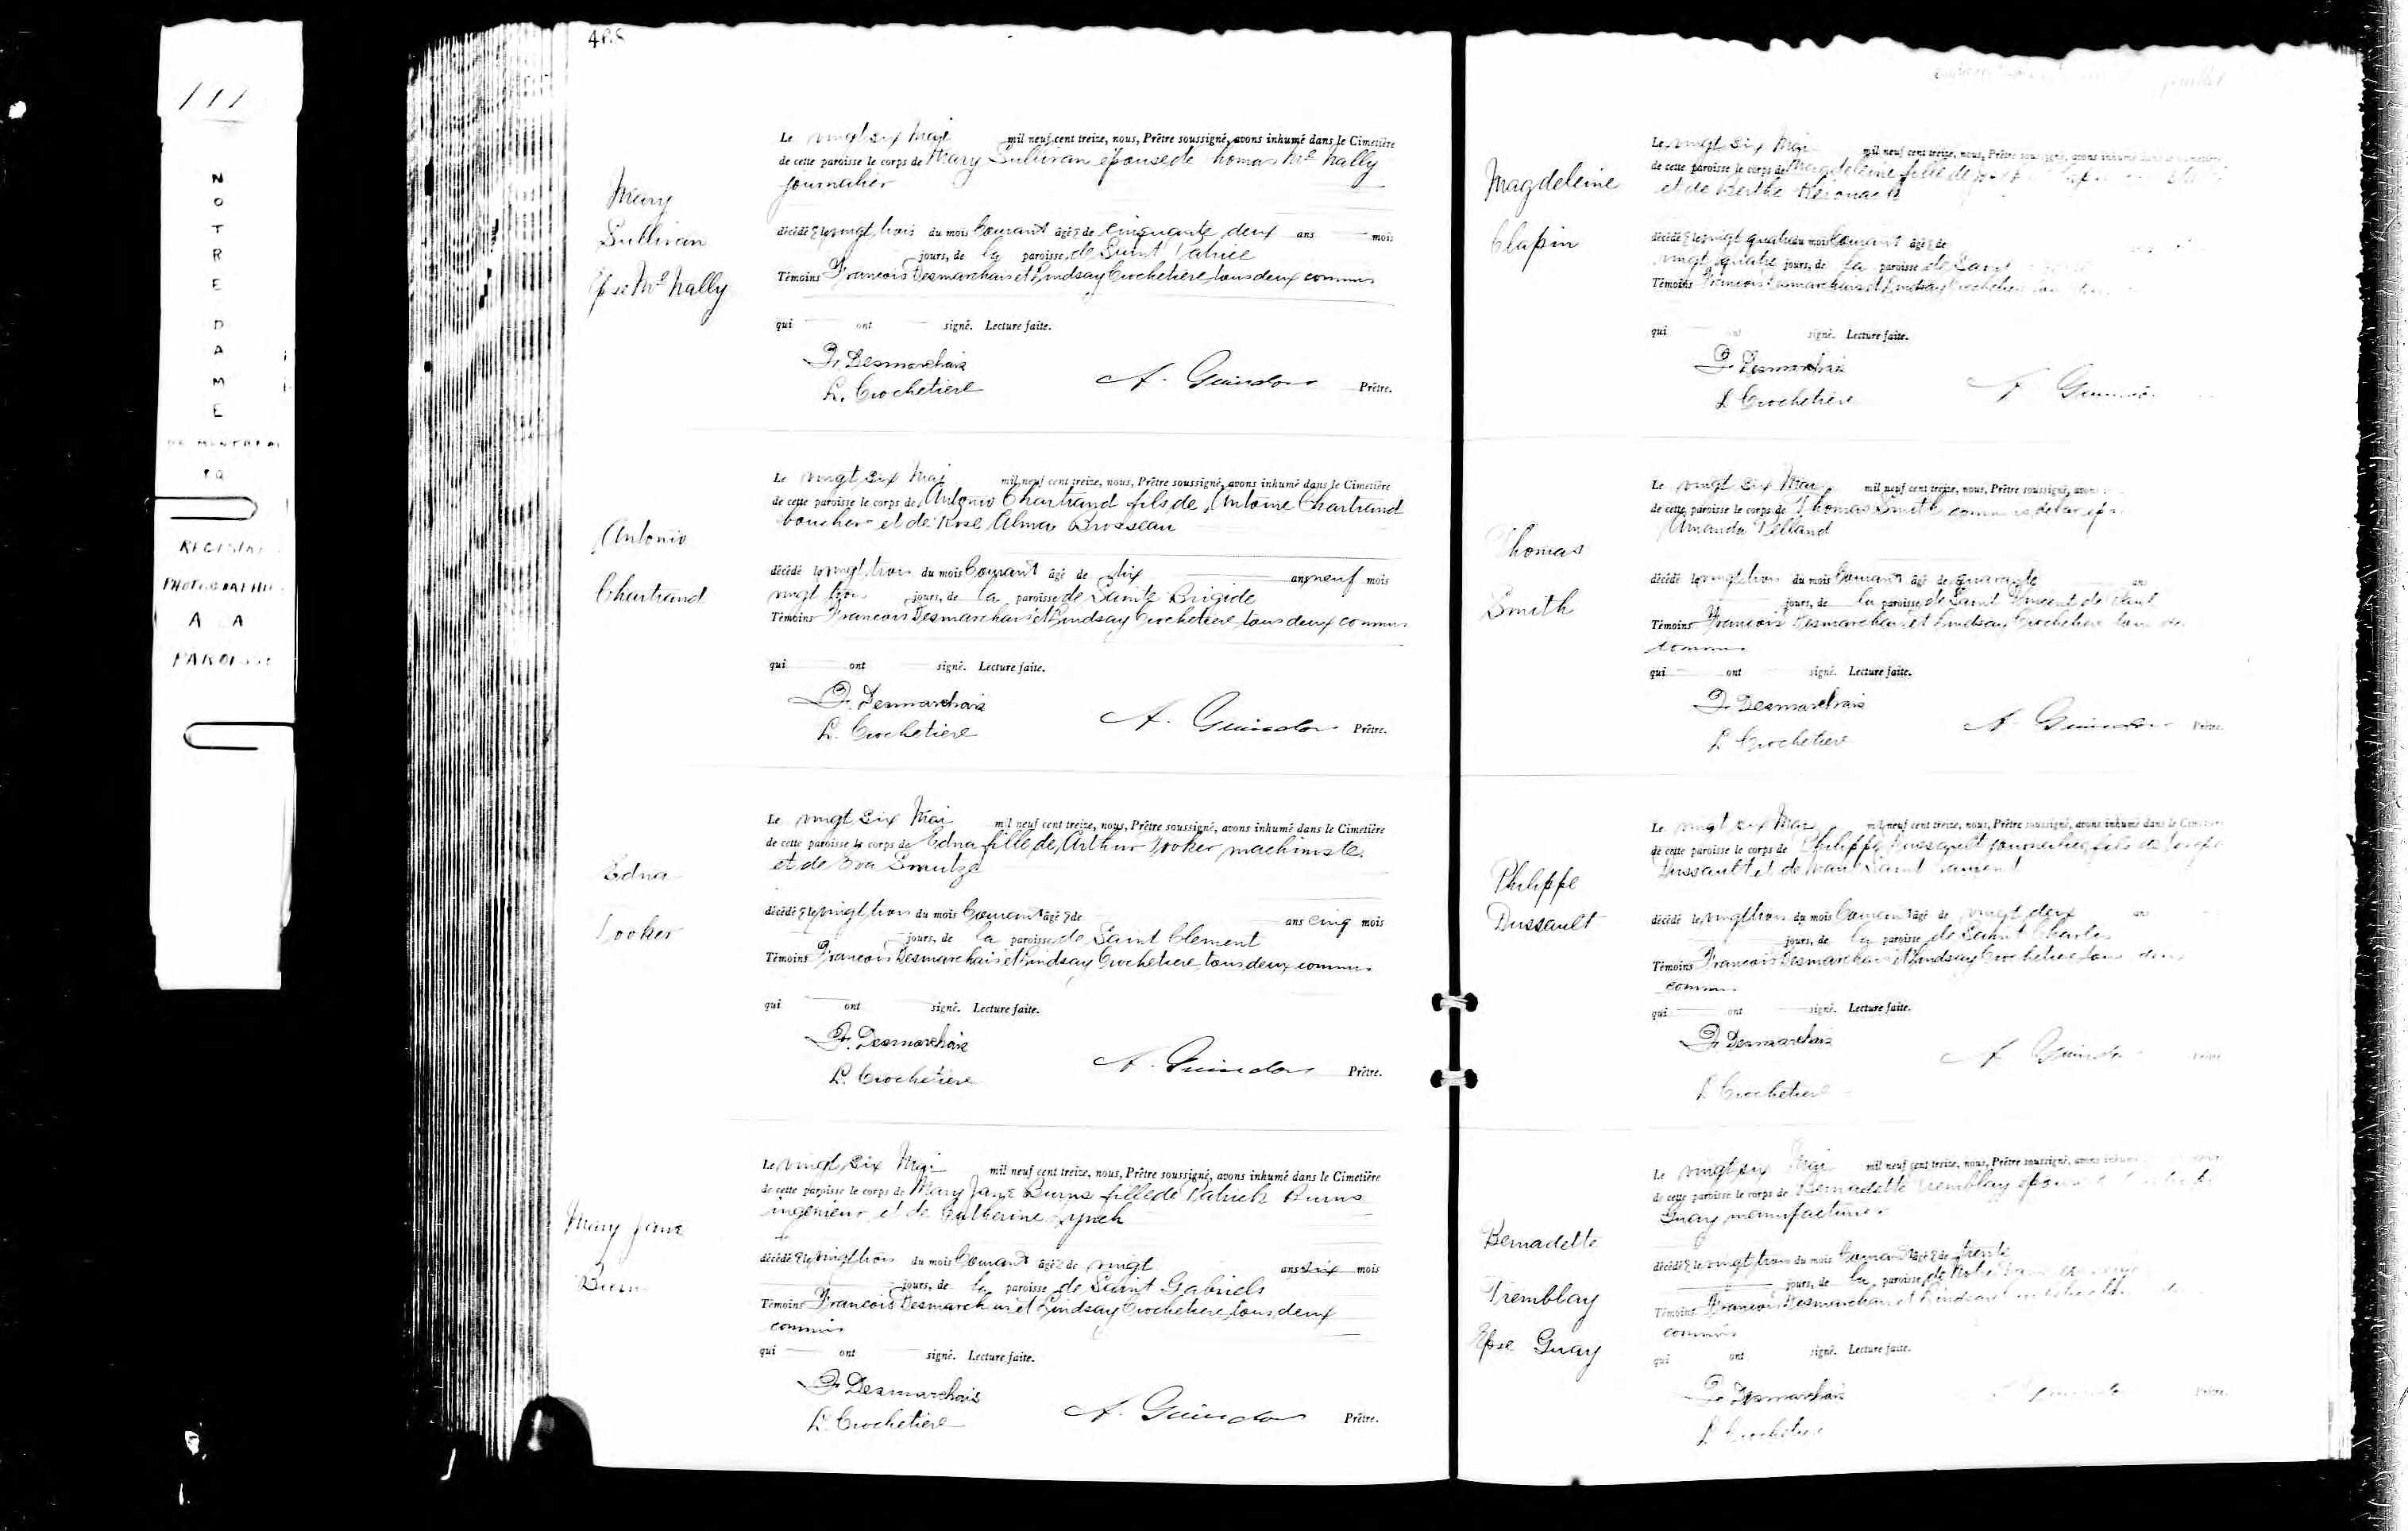 111
NOTRE DAME
DE MONTREAL
P Q
REGISTRE
PHOTOGRAPHIE
A LA
PAROISSE
Mary
Sullivan
Epse Mc Nally
Le vingt six Mai mil neuf cent treize, nous, Prêtre soussigné, avons inhumé dans le Cimetière
de cette paroisse le corps de Mary Sullivan épouse de Thomas Mc Nally
journalier
décédée le vingt trois du mois Courant âgée de cinquante deux ans mois
jours, de la paroisse de Saint Patrice
Témoins Francois Desmarchais et Lindsay Crochetiere tous deux commis
qui ont signé. Lecture faite.
F. Desmarchais
L. Crochetiere A. Guindon Prêtre.
Antonio
Chartrand
Le vingt six Mai mil neuf cent treize, nous, Prêtre soussigné, avons inhumé dans le Cimetière
de cette paroisse le corps de Antonio Chartrand fils de Antoine Chartrand
boucher et de Rose Alma Brosseau
décédé le vingt trois du mois Courant âgé de dix ans neuf mois
vingt trois jours, de la paroisse de Sainte Brigide
Témoins Francois Desmarchais et Lindsay Crochetiere tous deux commis
qui ont signé. Lecture faite.
F. Desmarchais
L. Crochetiere A. Guindon Prêtre.
Edna
Tooker
Le vingt six Mai mil neuf cent treize, nous, Prêtre soussigné, avons inhumé dans le Cimetière
de cette paroisse le corps de Edna fille de Arthur Tooker machiniste
et de Eva
décédée le vingt trois du mois Courant âgée de ans cinq mois
jours, de la paroisse de Saint Clement
Témoins Francois Desmarchais et Lindsay Crochetiere tous deux commis
qui ont signé. Lecture faite.
F. Desmarchais
L. Crochetiere A. Guindon Prêtre.
Mary Jane
Burns
Le vingt six Mai mil neuf cent treize, nous, Prêtre soussigné, avons inhumé dans le Cimetière
de cette paroisse le corps de Mary Jane Burns fille de Patrick Burns
ingénieur et de Catherine Lynch
décédée le vingt trois du mois Courant âgée de vingt ans six mois
jours, de la paroisse de Saint Gabriels
Témoins Francois Desmarchais et Lindsay Crochetiere tous deux
commis
qui ont signé. Lecture faite.
F. Desmarchais
L. Crochetiere A. Guindon Prêtre.
Magdeleine
Clapin
Le vingt six Mai mil neuf cent treize, nous, Prêtre soussigné, avons inhumé dans le Cimetière
de cette paroisse le corps de Magdeleine fille de
et de Berthe
décédée le vingt quatre du mois Courant âgée de
vingt quatre jours, de la paroisse de Saint
Témoins Francois Desmarchais et Lindsay Crochetiere tous
qui ont signé. Lecture faite.
F. Desmarchais
L Crochetiere A. Guindon
Thomas
Smith
Le vingt six Mai mil neuf cent treize, nous, Prêtre soussigné, avons
de cette paroisse le corps de Thomas Smith commis
Amanda Pelland
décédé le vingt trois du mois Courant âgé de quarante ans
jours, de la paroisse de Saint Vincent de Paul
Témoins Francois Desmarchais et Lindsay Crochetiere tous deux
commis
qui ont signé. Lecture faite.
F. Desmarchais
L Crochetiere A. Guindon Prêtre.
Philippe
Dussault
Le vingt six Mai mil neuf cent treize, nous, Prêtre soussigné, avons inhumé dans le Cimetière
de cette paroisse le corps de Philippe Dussault journalier fils de Joseph
Dussault et de Marie Saint Laurent
décédé le vingt trois du mois Courant âgé de vingt deux ans
jours, de la paroisse de Saint Charles
Témoins Francois Desmarchais et Lindsay Crochetiere tous deux
commis
qui ont signé. Lecture faite.
F. Desmarchais
L Crochetiere A. Guindon Prêtre
Bernadette
Tremblay
Epse Guay
Le vingt six Mai mil neuf cent treize, nous, Prêtre soussigné, avons inhumé
de cette paroisse le corps de Bernadette Tremblay épouse
Guay manufacturier
décédée le vingt trois du mois Courant âgée de trente
jours, de la paroisse de Notre
Témoins Francois Desmarchais et Lindsay Crochetiere
commis
qui ont signé. Lecture faite.
F. Desmarchais
L Crochetiere Prêtre.